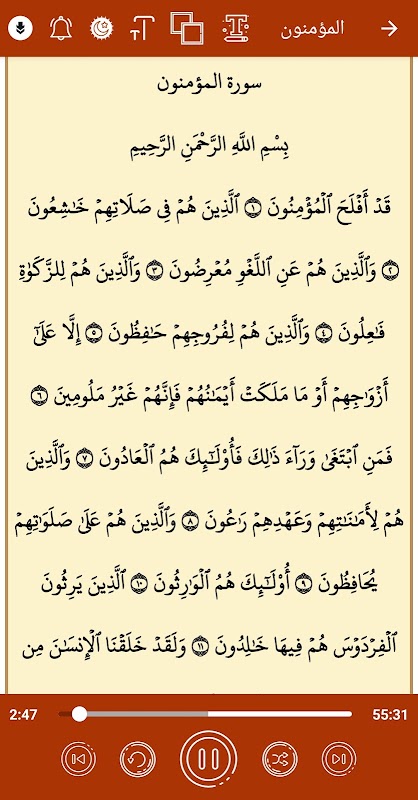 المؤمنون
سورة المؤمنون
بِسْمِ اللَّهِ الرَّحْمَنِ الرَّحِيمِ
قَدْ أَفْلَحَ ٱلْمُؤْمِنُونَ ١ ٱلَّذِينَ هُمْ فِى صَلَاتِهِمْ خَٰشِعُونَ
٢ وَٱلَّذِينَ هُمْ عَنِ ٱللَّغْوِ مُعْرِضُونَ ٣ وَٱلَّذِينَ هُمْ لِلزَّكَوٰةِ
فَٰعِلُونَ ٤ وَٱلَّذِينَ هُمْ لِفُرُوجِهِمْ حَٰفِظُونَ ٥ إِلَّا عَلَىٰٓ
أَزْوَٰجِهِمْ أَوْ مَا مَلَكَتْ أَيْمَٰنُهُمْ فَإِنَّهُمْ غَيْرُ مَلُومِينَ ٦
فَمَنِ ٱبْتَغَىٰ وَرَآءَ ذَٰلِكَ فَأُو۟لَٰٓئِكَ هُمُ ٱلْعَادُونَ ٧ وَٱلَّذِينَ
هُمْ لِأَمَٰنَٰتِهِمْ وَعَهْدِهِمْ رَٰعُونَ ٨ وَٱلَّذِينَ هُمْ عَلَىٰ صَلَوَٰتِهِمْ
يُحَافِظُونَ ٩ أُو۟لَٰٓئِكَ هُمُ ٱلْوَٰرِثُونَ ١٠ ٱلَّذِينَ يَرِثُونَ
ٱلْفِرْدَوْسَ هُمْ فِيهَا خَٰلِدُونَ ١١ وَلَقَدْ خَلَقْنَا ٱلْإِنسَٰنَ مِن
2:47 55:31